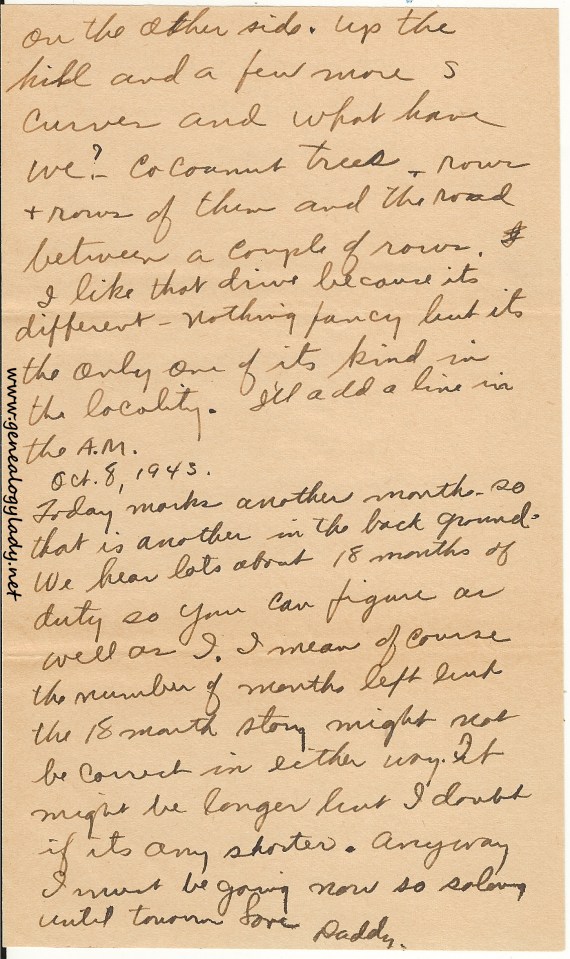 on the other side. up the
hill and a few more S
curves and what have
we? - Cocoanut trees - rows
+ rows of them and the road
between a couple of rows.
I like that drive because its
different - nothing fancy but its
the only one of its kind in
the locality. I'll add a line in
the A.M.
Oct. 8, 1943.
Today marks another month - so
that is another in the back ground.
We hear lots about 18 months of
duty so you can figure as
well as I. I mean of course
the number of months left but
the 18 month story might not
be correct in either way. It
might be longer but I doubt
if its any shorter. Anyway
I must be going now so solong
until tomorrow Love Daddy.
www.genealogylady.net